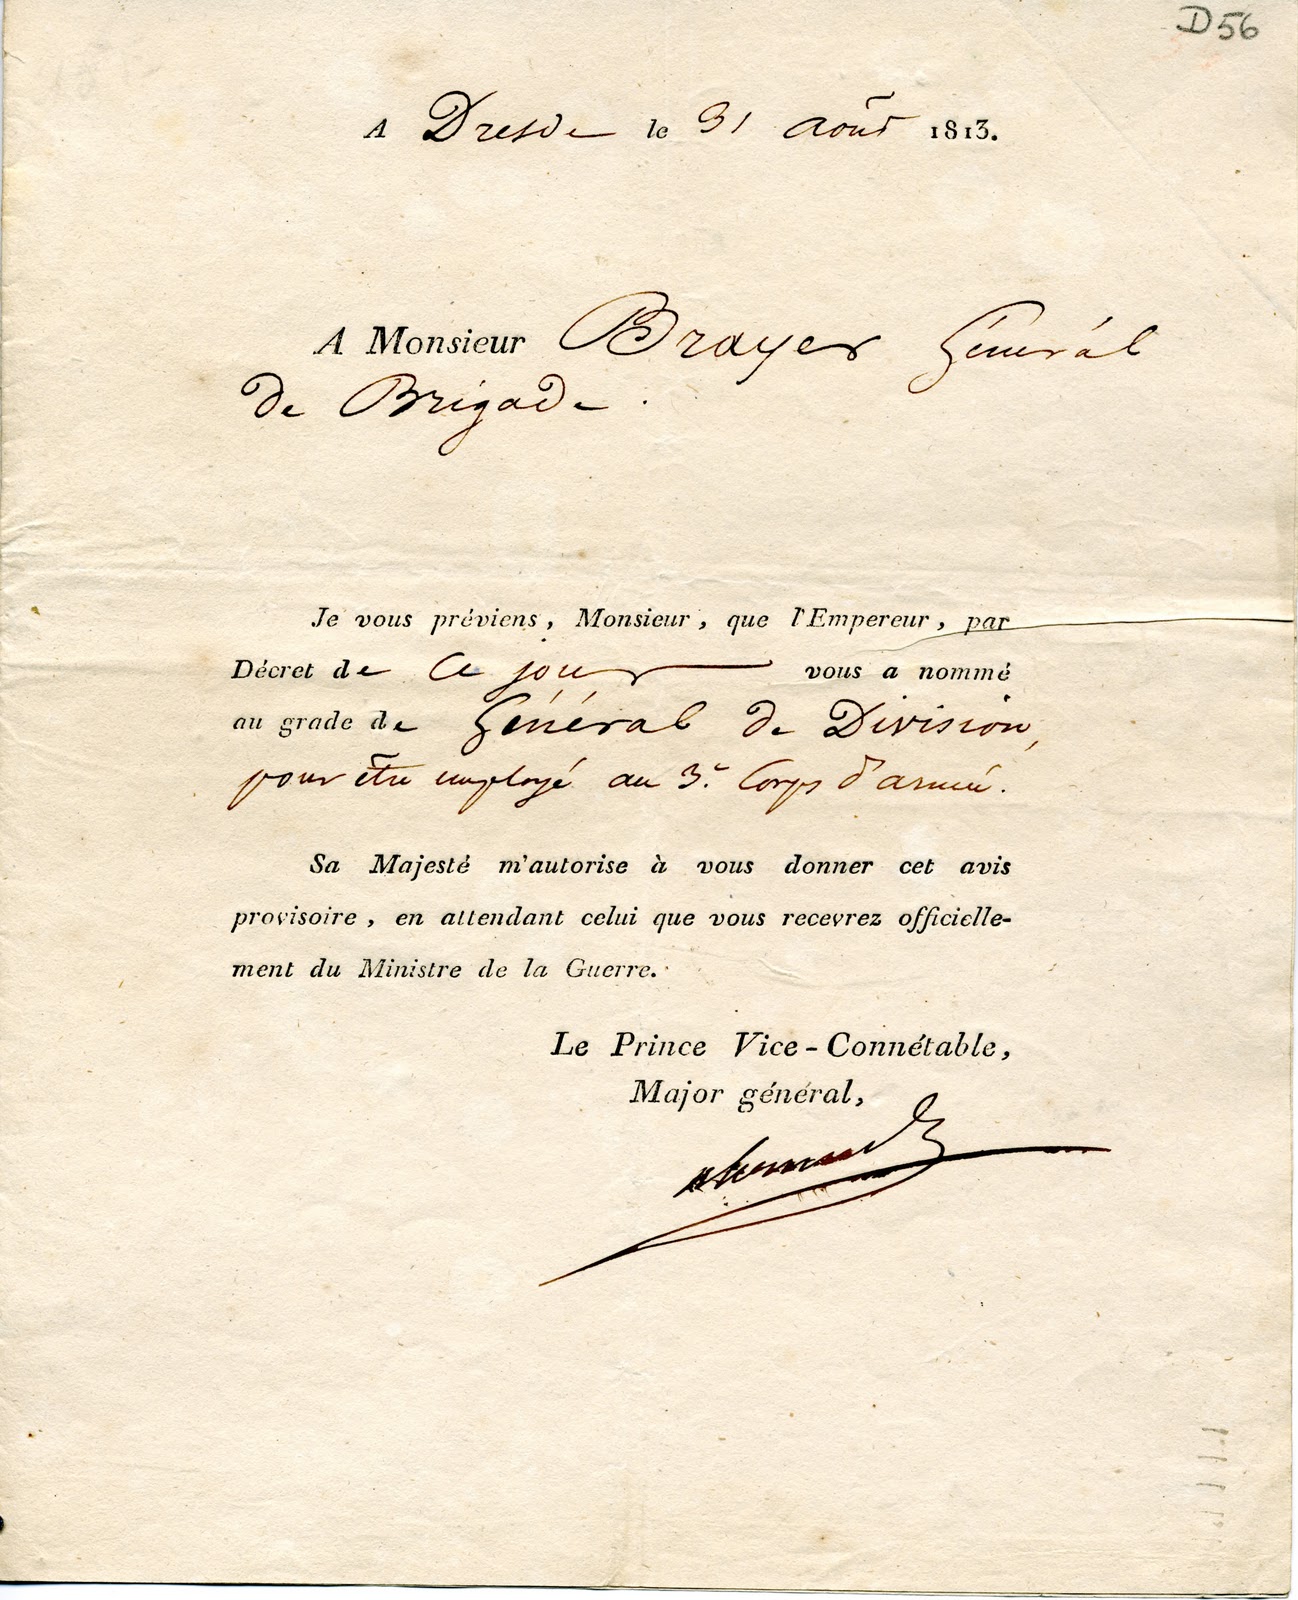 D56
A Dresde le 31 août 1813.
A Monsieur Brayer Général
de Brigade.
Je vous préviens, Monsieur, que l'Empereur, par
Décret de ce jour vous a nommé
au grade de Général de Division,
pour être employé au 3e. Corps d'armée.
Sa Majesté m'autorise à vous donner cet avis
provisoire, en attendant celui que vous recevrez officielle-
ment du Ministre de la Guerre.
Le Prince Vice-Connétable,
Major général,